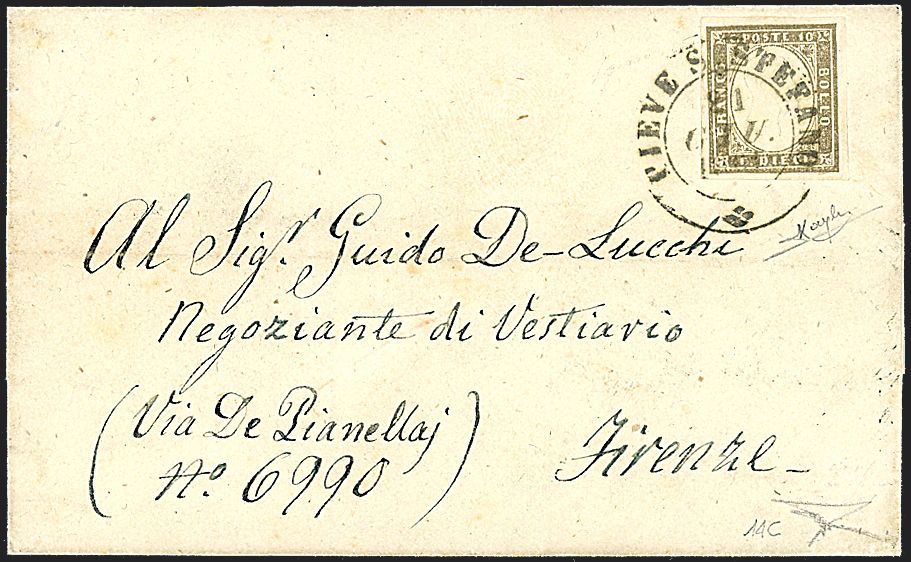 POSTE 10
FRANCO
BOLLO
C. DIECI
PIEVE S. STEFANO
1
GIU.
Al Sigr. Guido De-Lucchi
Negoziante di Vestiario
(Via De Pianellaj
No. 6990)
Firenze-
14C